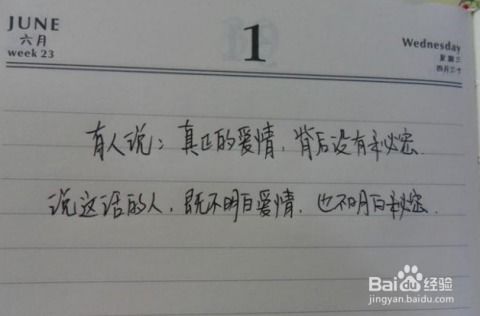 JUNE
六月
week 23
1
Wednesday
星期三
有人说：真正的爱情，背后没有秘密.
说这话的人，既不明白爱情，也不明白秘密.
Baidu经验
jingyan.baidu.com